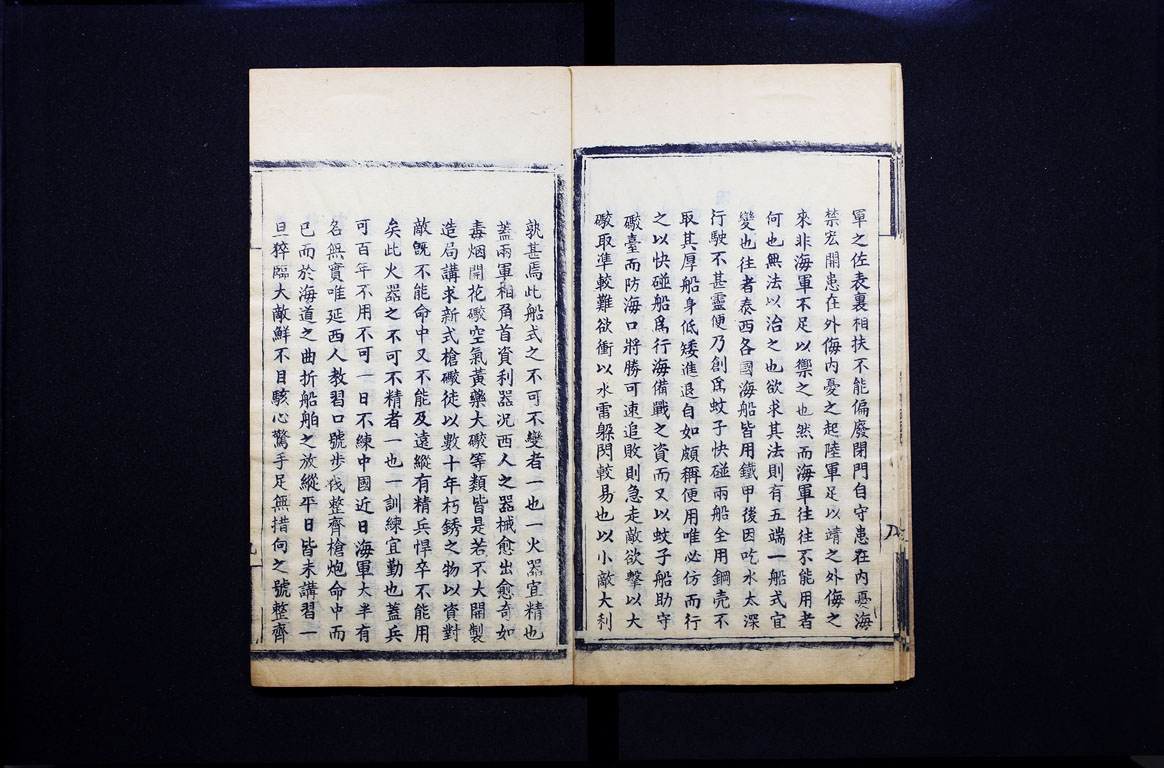 軍之佐表裏相扶不能偏廢閉門自守患在內憂海
禁宏開患在外侮內憂之起陸軍足以靖之外侮之
來非海軍不足以禦之也然而海軍往往不能用者
何也無法以治之也欲求其法則有五端一船式宜
變也往者泰西各國海船皆用鐵甲後因吃水太深
行駛不甚靈便乃創爲蚊子快碰兩船全用鋼壳不
取其厚船身低矮進退自如頗稱便用唯必仿而行
之以快碰船爲行海備戰之資而又以蚊子船助守
礮臺而防海口將勝可速追敗則急走敵欲擊以大
礮取準較難欲衝以水雷躲閃較易也以小敵大利
孰甚焉此船式之不可不變者一也一火器宜精也
蓋兩軍相角首資利器况西人之器械愈出愈奇如
毒烟開花礮空氣黃藥大礮等類皆是若不大開製
造局講求新式槍礮徒以數十年朽銹之物以資對
敵旣不能命中又不能及遠縱有精兵悍卒不能用
矣此火器之不可不精者一也一訓練宜勤也蓋兵
可百年不用不可一日不練中國近日海軍大半有
名無實唯延西人教習口號步伐整齊槍炮命中而
已而於海道之曲折船舶之放縱平日皆未講習一
旦猝臨大敵鮮不目駭心驚手足無措向之號整齊